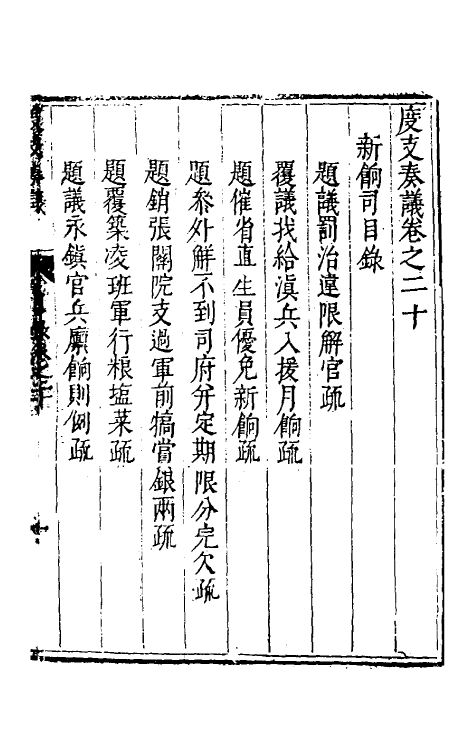 度支奏議卷之二十
新餉司目錄
題議罰治違限解官疏
覆議找給滇兵入援月餉疏
題催省直生員優免新餉疏
題參外觧不到司府并定期限分完欠疏
題銷張閣院支過軍前犒賞銀兩疏
題覆築凌班軍行粮塩菜疏
題議永鎮官兵廩餉則例疏